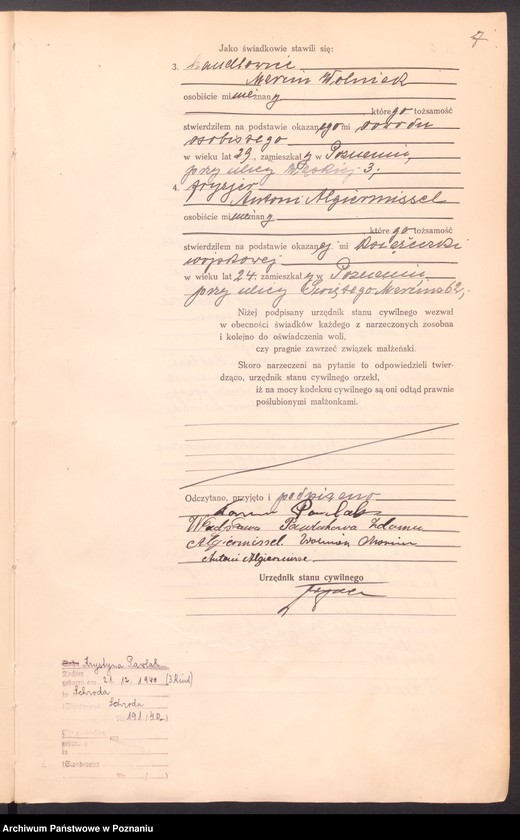 7
Jako świadkowie stawili się:
3. handlowiec
Marcin Wolniak
osobiście mi nieznany
którego tożsamość
stwierdziłem na podstawie okazanego mi dowodu
osobistego
w wieku lat 29, zamieszkały w Poznaniu,
przy ulicy 3;
4. fryzjer
Antoni Algiermissel
osobiście mi nieznany
którego tożsamość
stwierdziłem na podstawie okazanej mi książeczki
wojskowej
w wieku lat 24 zamieszkały w Poznaniu
przy ulicy Świętego Marcina 62,
Niżej podpisany urzędnik stanu cywilnego wezwał
w obecności świadków każdego z narzeczonych zosobna
i kolejno do oświadczenia woli,
czy pragnie zawrzeć związek małżeński.
Skoro narzeczeni na pytanie to odpowiedzieli twier-
dząco, urzędnik stanu cywilnego orzekł,
iż na mocy kodeksu cywilnego są oni odtąd prawnie
poślubionymi małżonkami.
Odczytano, przyjęto i podpisano
Pawlak
Władysława Pawlakowa z domu
Algiermissel. Wolniak Marcin
Antoni Algiermissel
Urzędnik stanu cywilnego
Krystyna Pawlak
Tochter
geboren am 21. 12. 1940 (3. Kind)
in Schroda
(Standesamt Schroda
Nr. 191/40)
geboren
in
(Standesamt
Nr. ( )
Archiwum Państwowe w Poznaniu